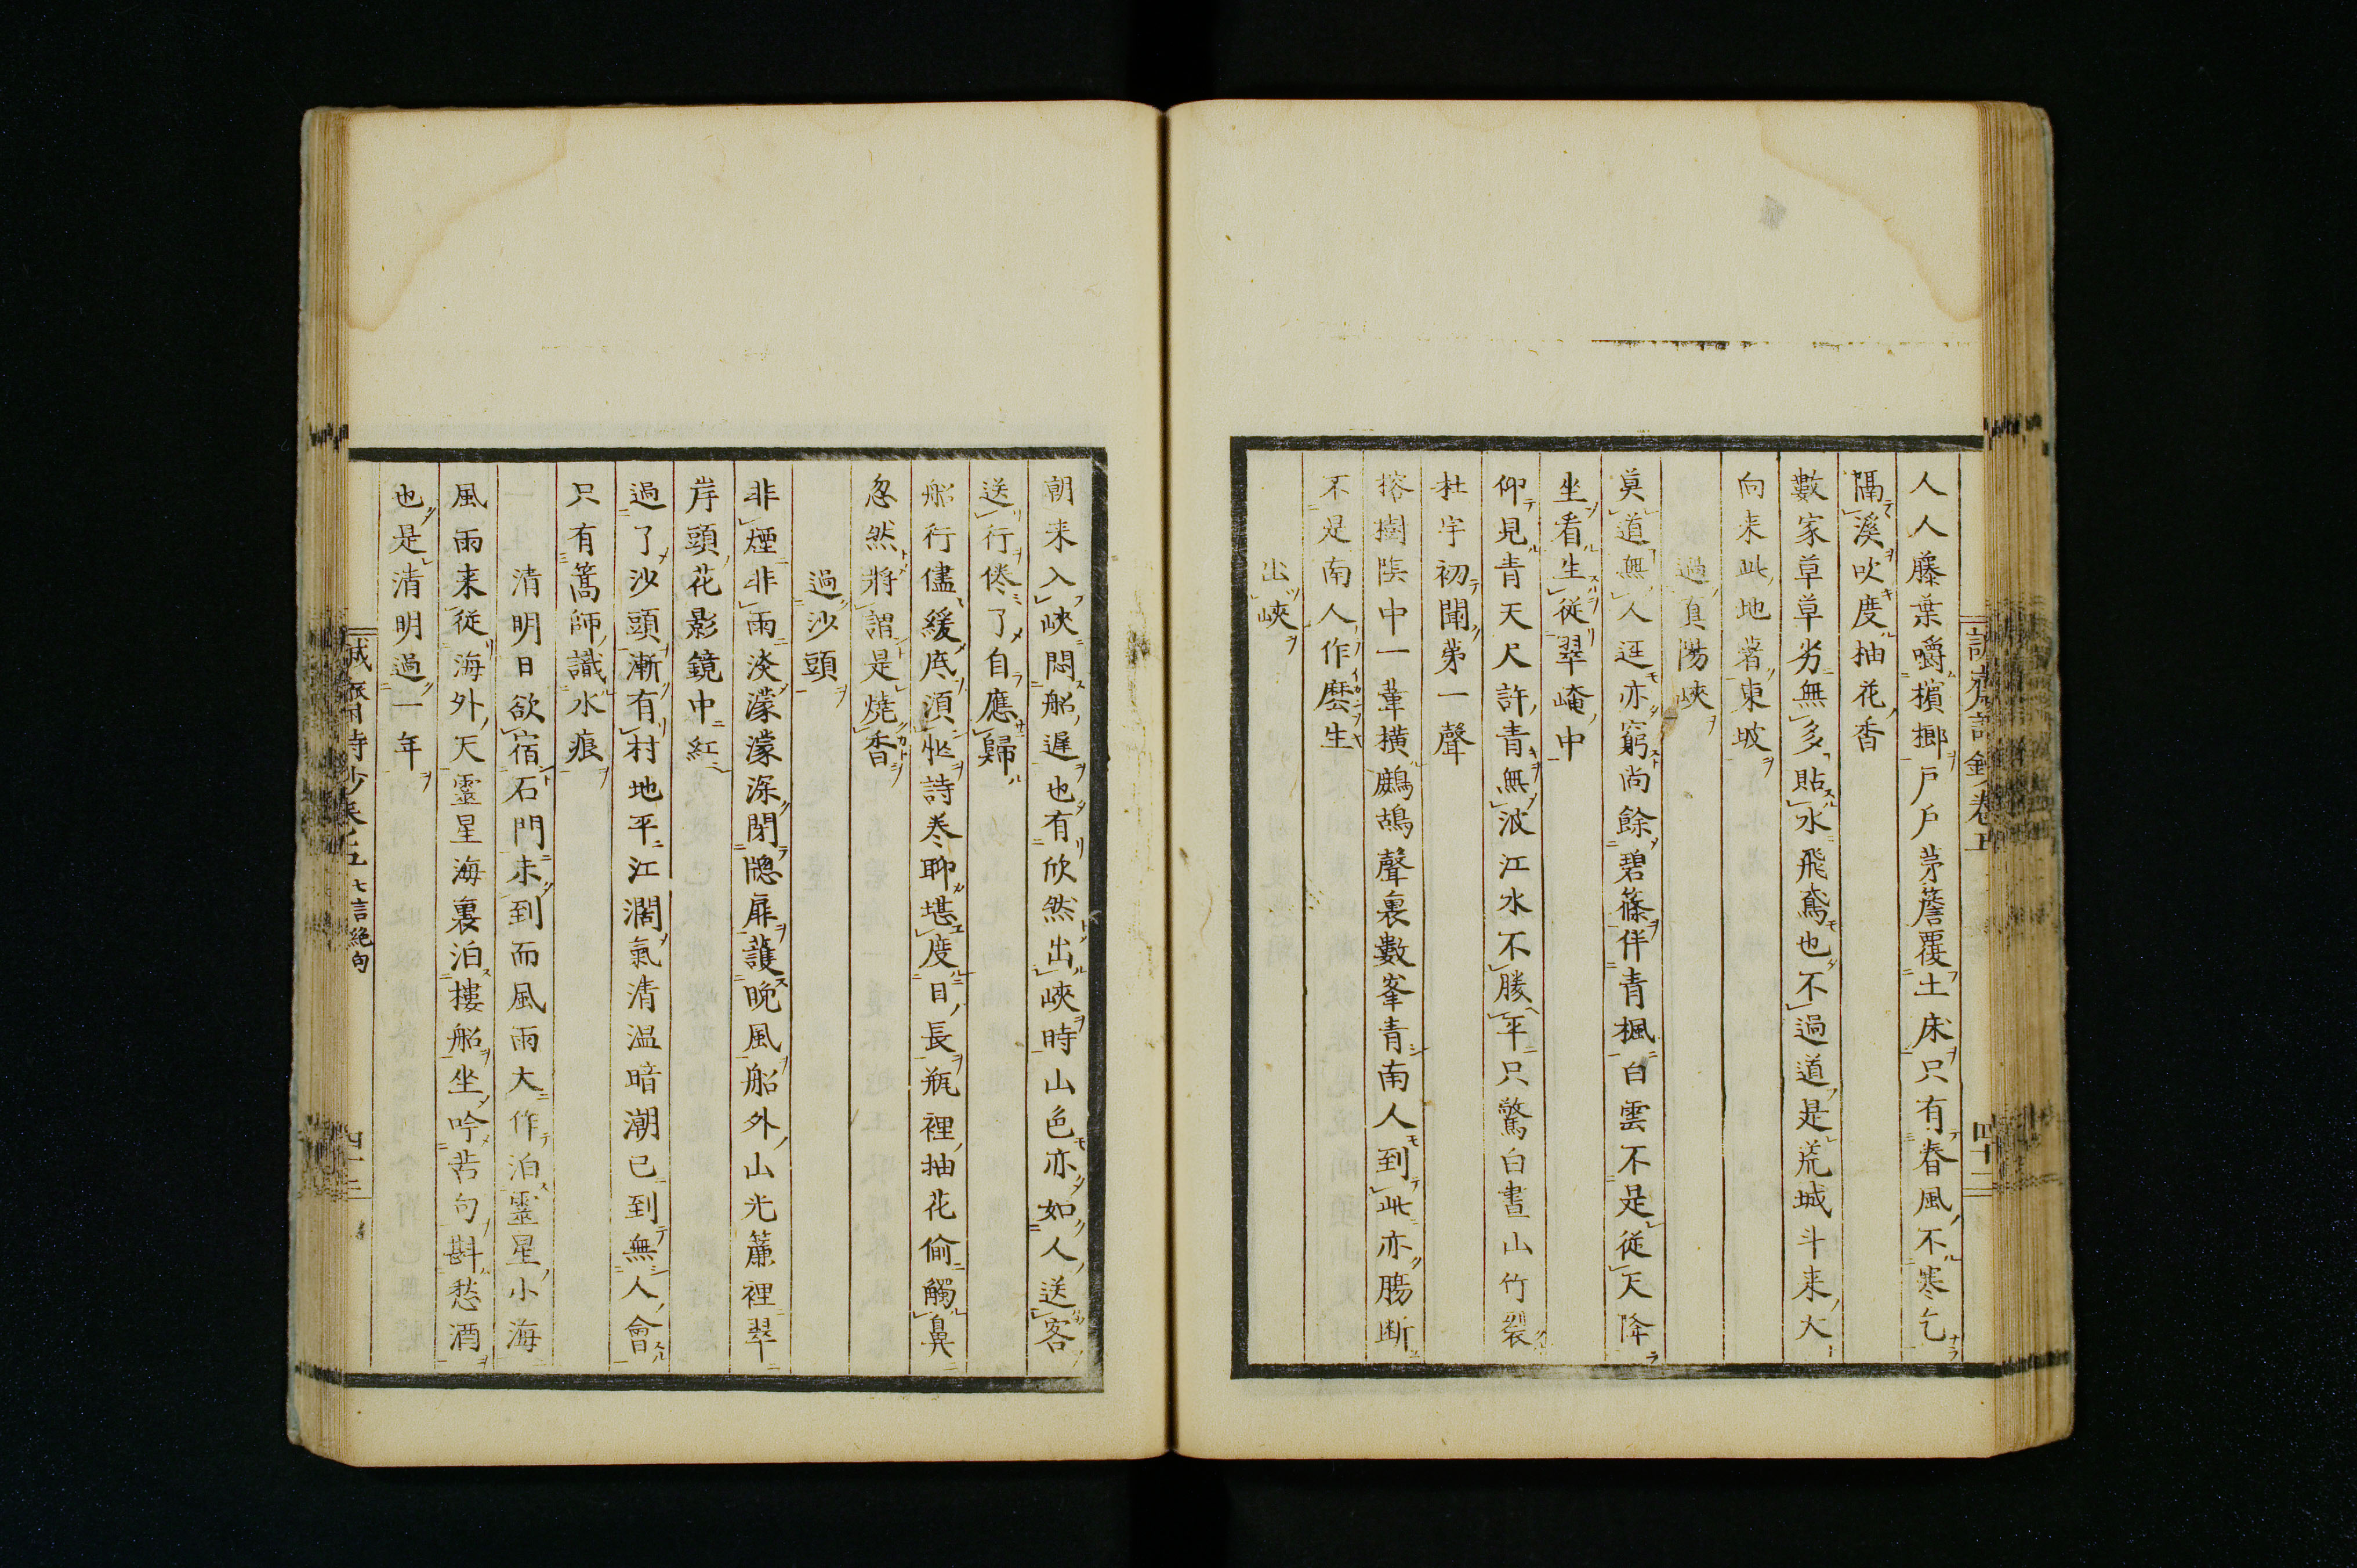 人人藤葉嚼檳榔戸戸茅簷覆土床只有春風不寒乞
隔溪吹度抽花香
數家草草劣無多貼水飛鳶也不過道是荒城斗来大
向来此地著東坡
過真陽峽
莫道無人迳亦窮尚餘碧篠伴青楓白雲不是従天降
坐看生従翠崦中
仰見青天尺許青無波江水不勝平只驚白晝山竹裂
杜宇初聞第一聲
榕樹陰中一葦横鷓鴣聲裏數峯青南人到此亦腸断
不是南人作麽生
出峽
朝来入峽悶船遲也有欣然出峽時山色亦如人送客
送行倦了自應歸
船行儘緩底須忙詩巻聊堪度日長瓶裡抽花偷觸鼻
忽然將謂是燒香
過沙頭
非煙非雨淡濛濛深閉牕扉護晚風船外山光簾裡翠
岸頭花影鏡中紅
過了沙頭漸有村地平江濶氣清温暗潮已到無人會
只有篙師識水痕
清明日欲宿石門未到而風雨大作泊靈星小海
風雨来従海外天靈星海裏泊樓船坐吟苦句斟愁酒
也是清明過一年
七言絶句